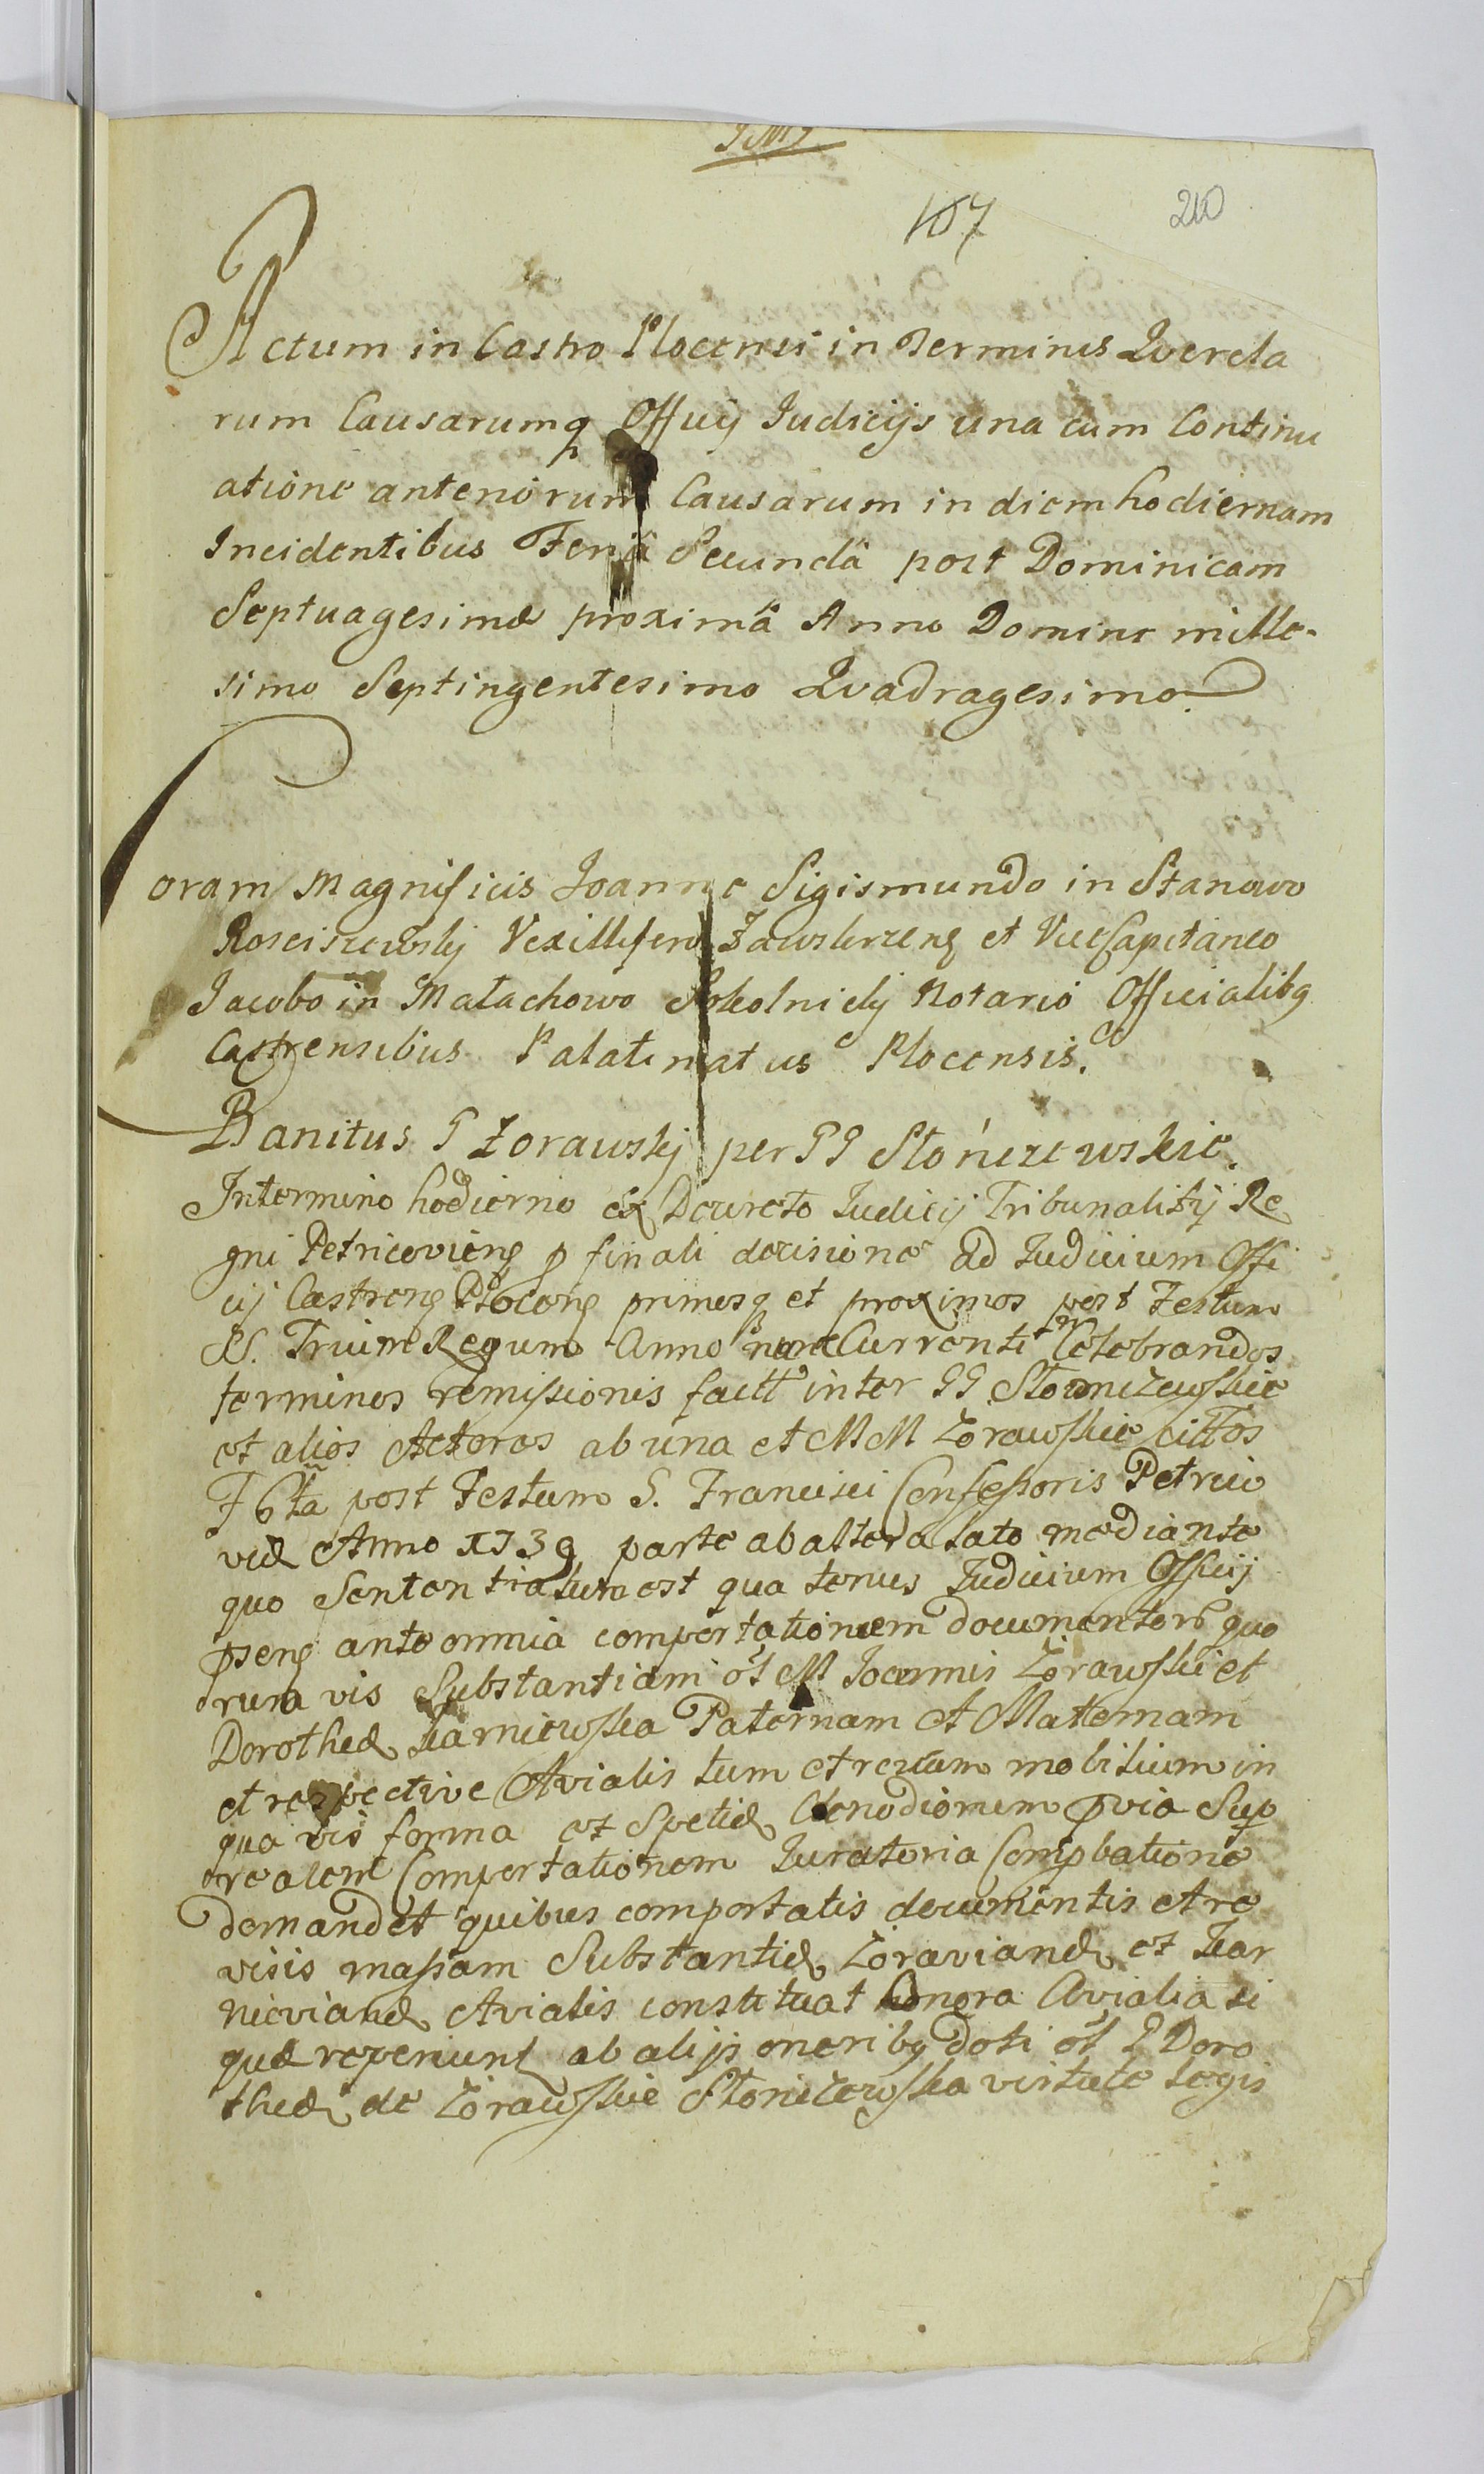 107 210
Actum in Castro Plocensi in Terminis Querela
rum Causarumq Officij Iudicijs una cum Continu
atione anteriorum Causarum in diem hodiernam
Incidentibus Feria Secundâ post Dominicam
Septuagesimæ proximâ Anno Domini mille-
simo Septingentesimo Quadragesimo.
Coram Magnificis Joanne Sigismundo in Stanowo
Rosciszewskj Vexillifero Zawskrzeng et ViceCapitaneo
Jacobo in Małachowo Sokolnickj Notario Officialibq
Castrensibus Palatinatus Plocensis.
Banitus G Zorawskj per GG Słończewskie.
In termino hodierno ex Decreto Iudicij Tribunalitij Re
gni Petricovieng p finali decisione ad Iudicium Offi
cij Castreng Ploceng primosq et proximos post Festum
SS. Trium Regum Anno nunc Currenti Celebrandos
terminos remissionis factt inter GG Słonczewskie
et alios Actores ab una et MM Zorawskie citto̅s
F 6ta post Festum S. Francisci Confessoris Petrico
viæ Anno 1739 parte ab altera lato mediante
quo Sententiatum est qua tenus Iudicium Officij
pseng ante omnia comportationem documentorũ quo
rum vis Substantiam ol M Joannis Zorawski et
Dorotheæ Paternam et Maternam
et respective Avialis tum et rerum mobilium in
qua vis forma et Spetiæ Clenodiorum pvia Sup
realem Comportationem Iuratoria Compbatione
demandet quibus comportatis documentis et re
visis massam Substantiæ Zoravianæ et Kar
nievianæ Avialis constituat onera Avialia si
quæ reperiunt ab alijs oneribq doti ol G Doro
theæ de Zorawskie Słonczewska virtute legis